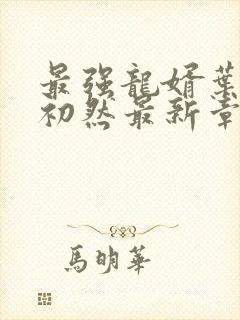 最强龍婿葉
初然最新章
馬明華